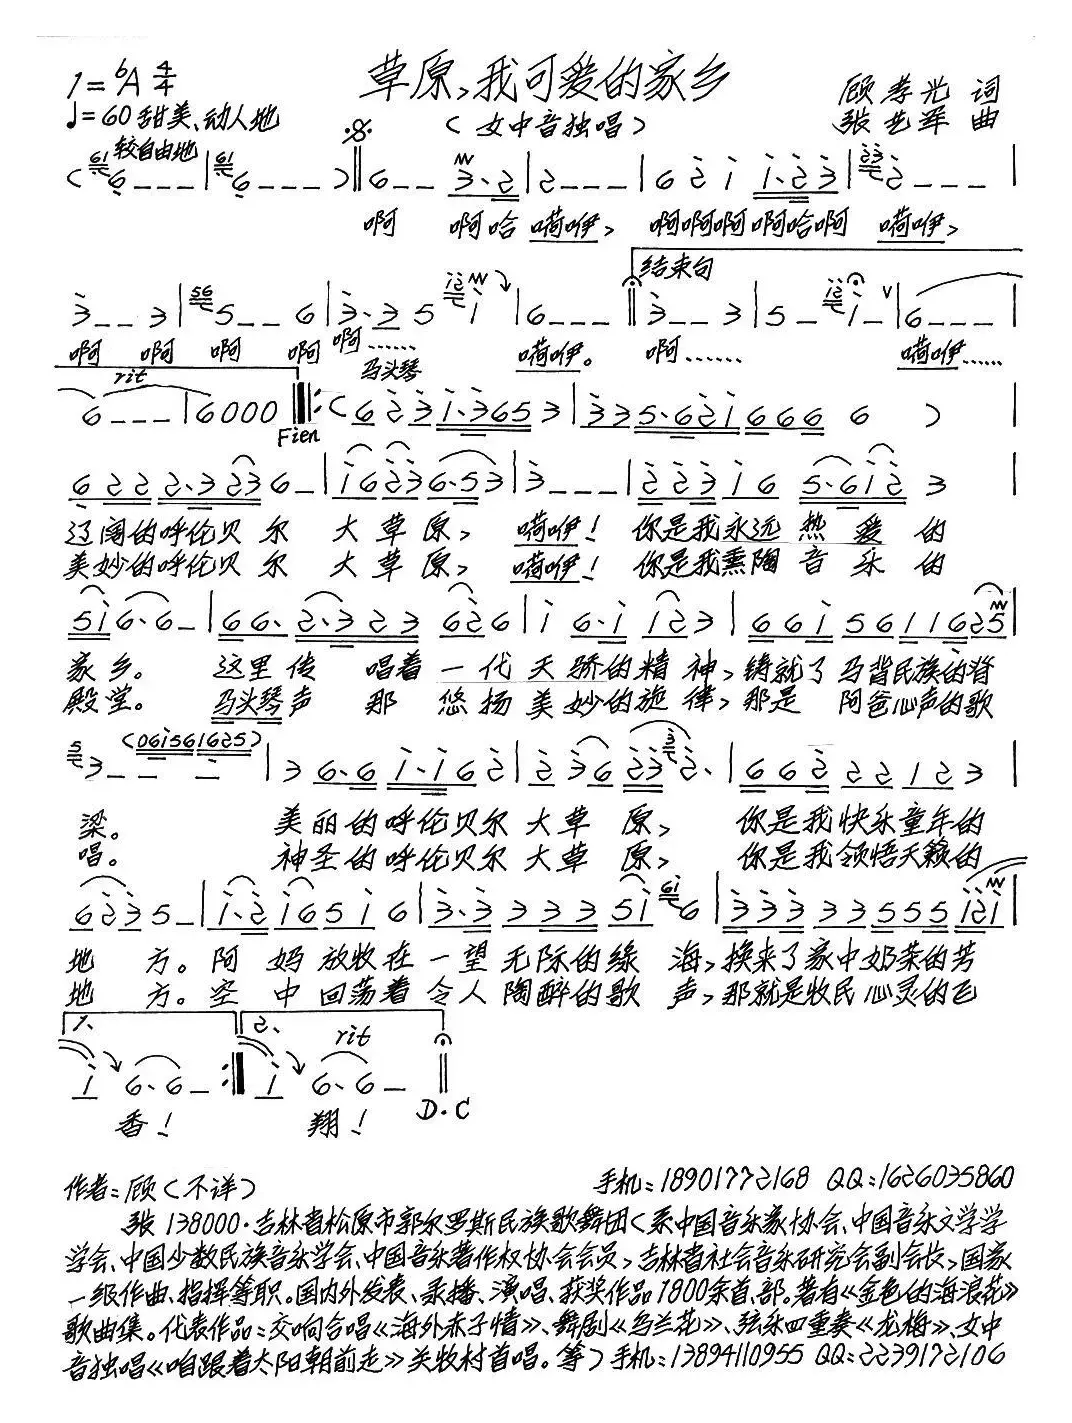 1=ᵇA 4/4
草原,我可爱的家乡
顾孝光 词
♩=60 甜美、动人地
(女中音独唱)
张艺军 曲
较自由地
(6___|6___)‖6__ 3·2|2___|6 2 1 1·23|2___|
啊 啊哈 嗬咿, 啊啊啊 啊哈啊 嗬咿,
结束句
3__3|5__6|3·3 5 1|6___‖3__3|5_1_∨|6___|
啊 啊 啊 啊 啊…… 嗬咿。 啊…… 嗬咿……
rit 马头琴
6___|6000‖:(6 23 1·365 3|33 5·621 666 6 )|
Fien
622 2·323 6_|1623 6·53|3___|223 16 5·612 3|
辽阔的呼伦贝 尔 大 草 原, 嗬咿! 你是我永远 热 爱 的
美妙的呼伦贝 尔 大 草 原, 嗬咿! 你是我熏陶 音 乐 的
51 6·6_|66·2·323 626|1 6·1 123|661 56 116 25|
家 乡。 这里传 唱着 一代 天骄的精 神, 铸就了 马背民族的脊
殿堂。 马头琴声 那 悠扬 美妙的旋 律, 那是 阿爸心声的歌
3__(061561625)_|3 6·6 1·162|2 36 23 2·|662 22 12 3|
梁。 美丽的呼伦贝尔 大草 原, 你是我快乐童年的
唱。 神圣的呼伦贝尔 大草 原, 你是我领悟天籁的
623 5_|1·2 16 51 6|3·3 333 51 6|333 33 555 121|
地 方。阿 妈 放牧在 一望 无际的绿 海, 换来了家中奶茶的芳
地 方。空 中 回荡着 令人 陶醉的歌 声, 那就是牧民 心灵的飞
1、 2、 rit
1 6·6_:‖1 6·6_‖
D.C
香! 翔!
作者:顾(不详) 手机:18901772168 QQ:1626035860
张 138000·吉林省松原市郭尔罗斯民族歌舞团(系中国音乐家协会、中国音乐文学学
学会、中国少数民族音乐学会、中国音乐著作权协会会员,吉林省社会音乐研究会副会长,国家
一级作曲、指挥等职。国内外发表、录播、演唱、获奖作品1800余首、部。著有《金色的海浪花》
歌曲集。代表作品:交响合唱《海外赤子情》、舞剧《乌兰花》、弦乐四重奏《龙梅》、女中
音独唱《咱跟着太阳朝前走》关牧村首唱。等)手机:13894110955 QQ:2239172106